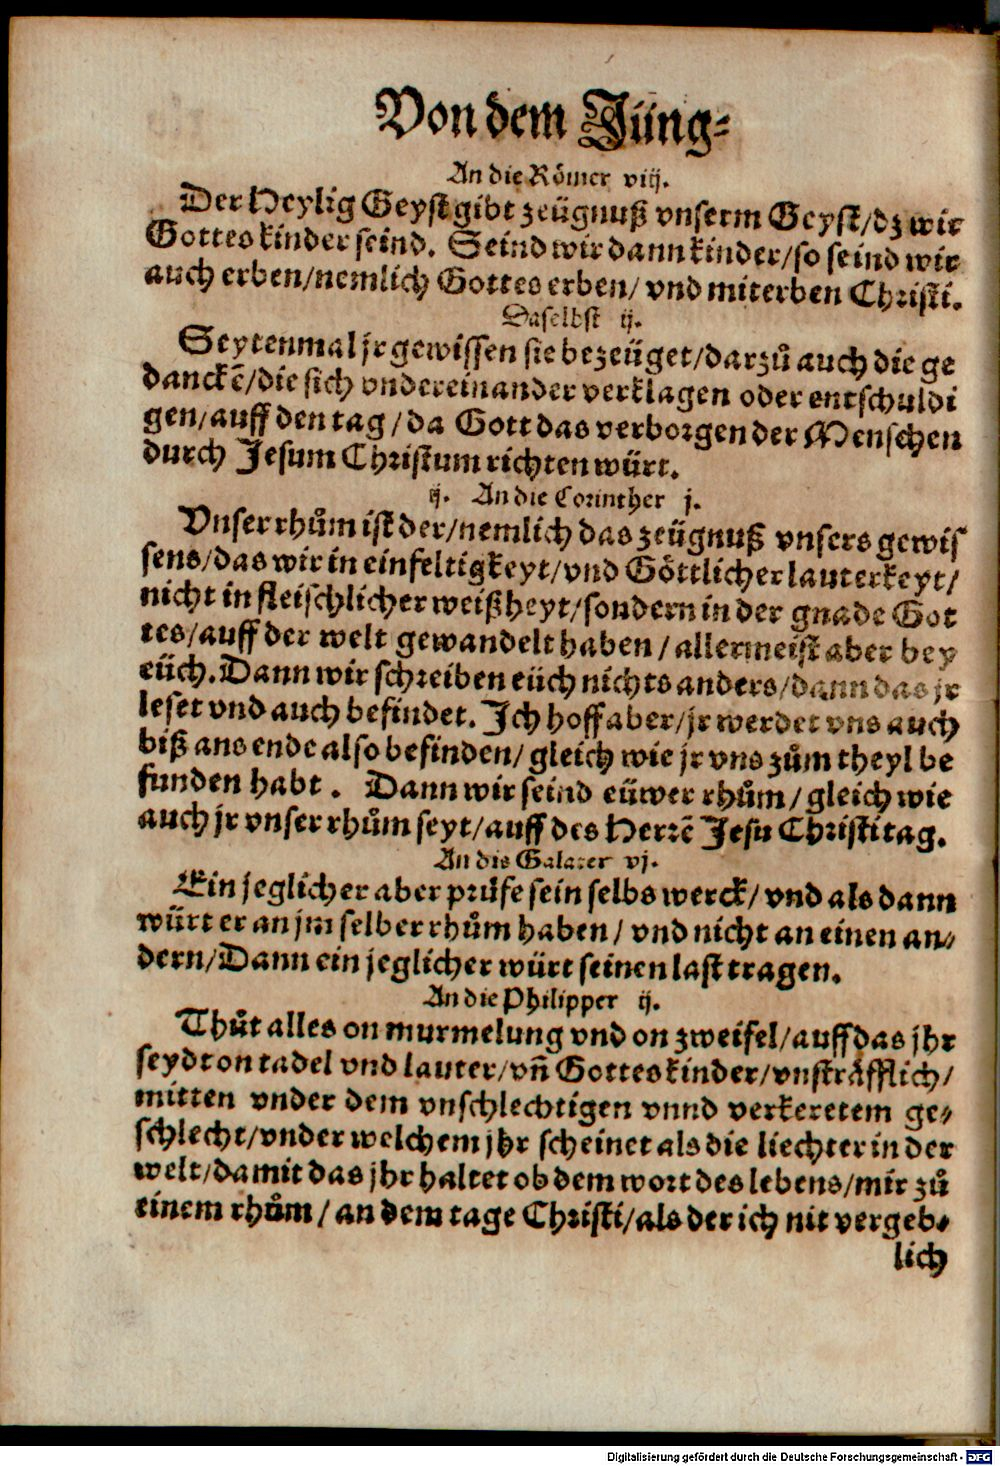 Von dem Jüng⸗
An die Römer viij.
Der Heylig Geyst gibt zeügnuß vnserm Geyst/dz wir
Gottes kinder seind. Seind wir dann kinder/so seind wir
auch erben/nemlich Gottes erben/ vnd miterben Christi.
Daselbst ij.
Seytenmal jr gewissen sie bezeüget/darzuͦ auch die ge
danckē/die sich vndereinander verklagen oder entschuldi
gen/auff den tag/da Gott das verborgen der Menschen
durch Jesum Christum richten würt.
ij. An die Corinther j.
Vnser rhuͦm ist der/nemlich das zeügnuß vnsers gewis
sens/das wir in einfeltigkeyt/vnd Göttlicher lauterkeyt/
nicht in fleischlicher weißheyt/sondern in der gnade Got
tes/auff der welt gewandelt haben/allermeist aber bey
eüch. Dann wir schreiben eüch nichts anders/dann das jr
leset vnd auch befindet. Ich hoff aber/jr werdet vns auch
biß ans ende also befinden/gleich wie jr vns zuͦm theyl be
funden habt. Dann wir seind eüwer rhuͦm/gleich wie
auch jr vnser rhuͦm seyt/auff des Herrē Jesu Christi tag.
An die Galater vj.
Ein jeglicher aber pruͤfe sein selbs werck/vnd als dann
würt er an jm selber rhuͦm haben/vnd nicht an einen an⸗
dern/Dann ein jeglicher würt seinen last tragen.
An die Philipper ij.
Thuͦt alles on murmelung vnd on zweifel/auff das jhr
seydt on tadel vnd lauter/vñ Gottes kinder/vnsträfflich/
mitten vnder dem vnschlechtigen vnnd verkeretem ge⸗
schlecht/vnder welchem jhr scheinet als die liechter in der
welt/damit das jhr haltet ob dem wort des lebens/mir zuͦ
einem rhuͦm/an dem tage Christi/als der ich nit vergeb⸗
lich
Digitalisierung gefördert durch die Deutsche Forschungsgemeinschaft - DFG